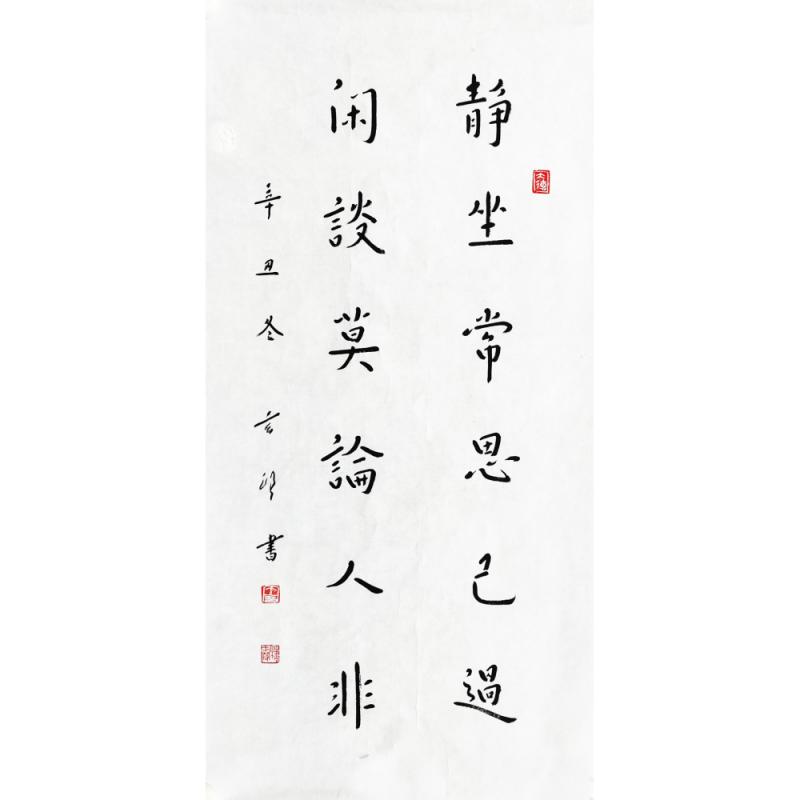 靜坐常思己過
闲談莫論人非
辛丑冬
書